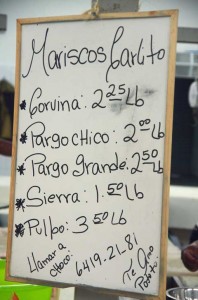 Mariscos Carlito
*Corvina: 2 25 Lb
*Pargo chico: 2 00 Lb
*Pargo Grande: 2 50 Lb
*Sierra: 1.50 Lb
*Pulpo: 3 50 Lb
Llamar a
6419.2L81
Te Amo